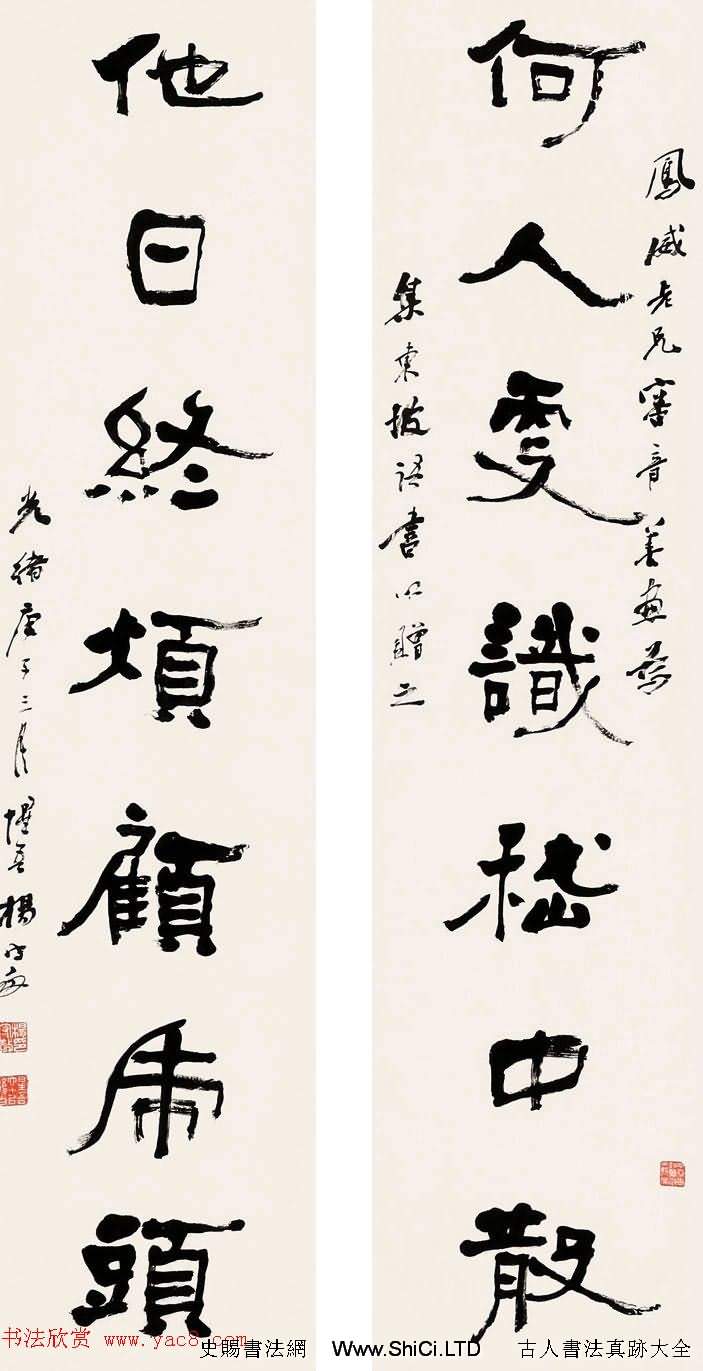 鳳威老兄審音善畫爲
何人更識嵇中散
集東坡語書以贈之
他日終煩顧虎頭
光緒庚子三月惺吾楊守敬
书法欣赏 www.yac8.com
史賜書法網 Www.ShiCi.LTD 古人書法真跡大全